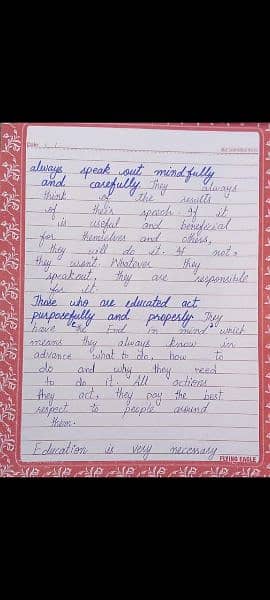 Date
always speak out mindfully
and carefully. They always
think of the results
of their speech. If it
is useful and beneficial
for themselves and others,
they will do it. If not,
they won't. Whatever they
speakout, they are responsible
for it.
Those who are educated act
purposefully and properly They
have "the End in mind" which
means they always know in
advance what to do, how to
do and why they need
to do it. All actions
they act, they pay the best
respect to people around
them.
Education is very necessary
FLYING EAGLE